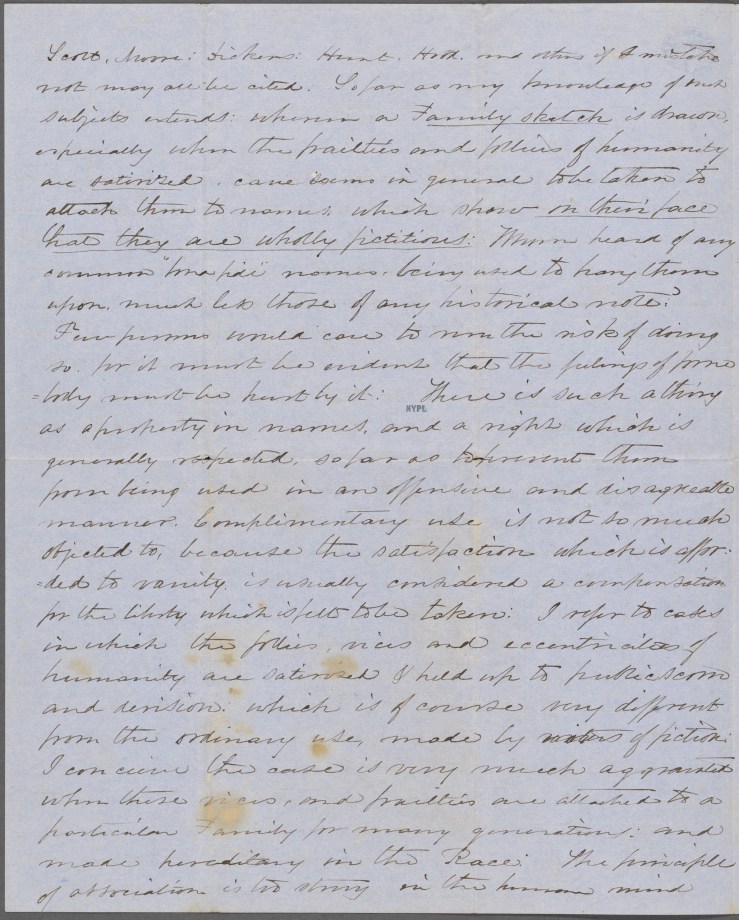 Scott, Moore: Dickens: Hunt. Hood. and others if I mistake
not may all be cited. So far as my knowledge of such
subjects extends: wherein a Family sketch is drawn,
especially when the frailties and follies of humanity
are satirised, care seems in general to be taken to
attach them to names, which show on their face
that they are wholly fictitious. Whom heard of any
common "bona fide" names, being used to hang them
upon, much less those of any historical note?
Few persons would care to run the risk of doing
so, for it must be evident that the feelings of some
=body must be hurt by it: There is such a thing
NYPL
as a property in names, and a right which is
generally respected, so far as to prevent them
from being used in an offensive and disagreeable
manner. Complimentary use is not so much
objected to, because the satisfaction which is affor-
=ded to vanity, is usually considered a compensation
for the liberty which is felt to be taken: I refer to cases
in which the follies, vices and eccentricities of
humanity are satirised & held up to public scorn
and derision: which is of course very different
from the ordinary use, made by writers of fiction:
I conceive the case is very much aggravated
when these vices, and frailties are attached to a
particular Family for many generations: and
made hereditary in the Race: The principle
of association is too strong in the human mind